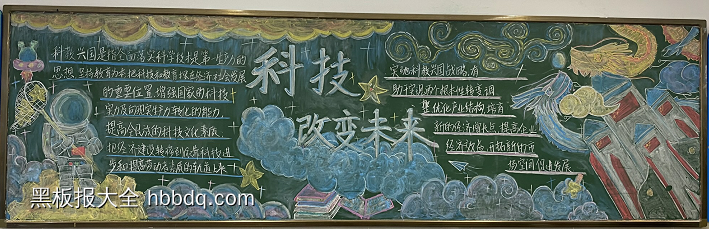 科教兴国是指全面落实科学技术是第一生产力的
思想 坚持教育为本 把科技和教育摆在经济社会发展
的重要位置 增强国家的科技
实力及向现实生产力转化的能力
提高全民族的科技文化素质
把经济建设转移到依靠科技进
步和提高劳动者素质的轨道上来
科技
改变未来
实施科教兴国战略,有
助于实现两个根本性转变 调
整优化产业结构 培育
新的经济增长点 提高企业
经济效益 开拓新的市
场空间 促进发展
黑板报大全 hbbdq.com